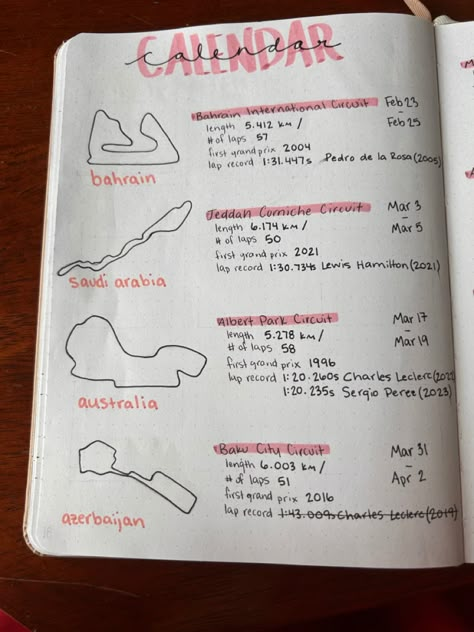 CALENDAR
calendar
Bahrain International Circuit Feb 23
length 5.412 km / Feb 25
# of laps 57
first grand prix 2004
lap record 1:31.447s Pedro de la Rosa (2005)
bahrain
Jeddah Corniche Circuit Mar 3
length 6.174 km / –
# of laps 50 Mar 5
first grand prix 2021
lap record 1:30.734s Lewis Hamilton (2021)
saudi arabia
Albert Park Circuit Mar 17
length 5.278 km / –
# of laps 58 Mar 19
first grand prix 1996
lap record 1:20.260s Charles Leclerc (2022
1:20.235s Sergio Perez (2023)
australia
Baku City Circuit Mar 31
length 6.003 km / –
# of laps 51 Apr 2
first grand prix 2016
lap record 1:43.009s Charles Leclerc (2019)
azerbaijan